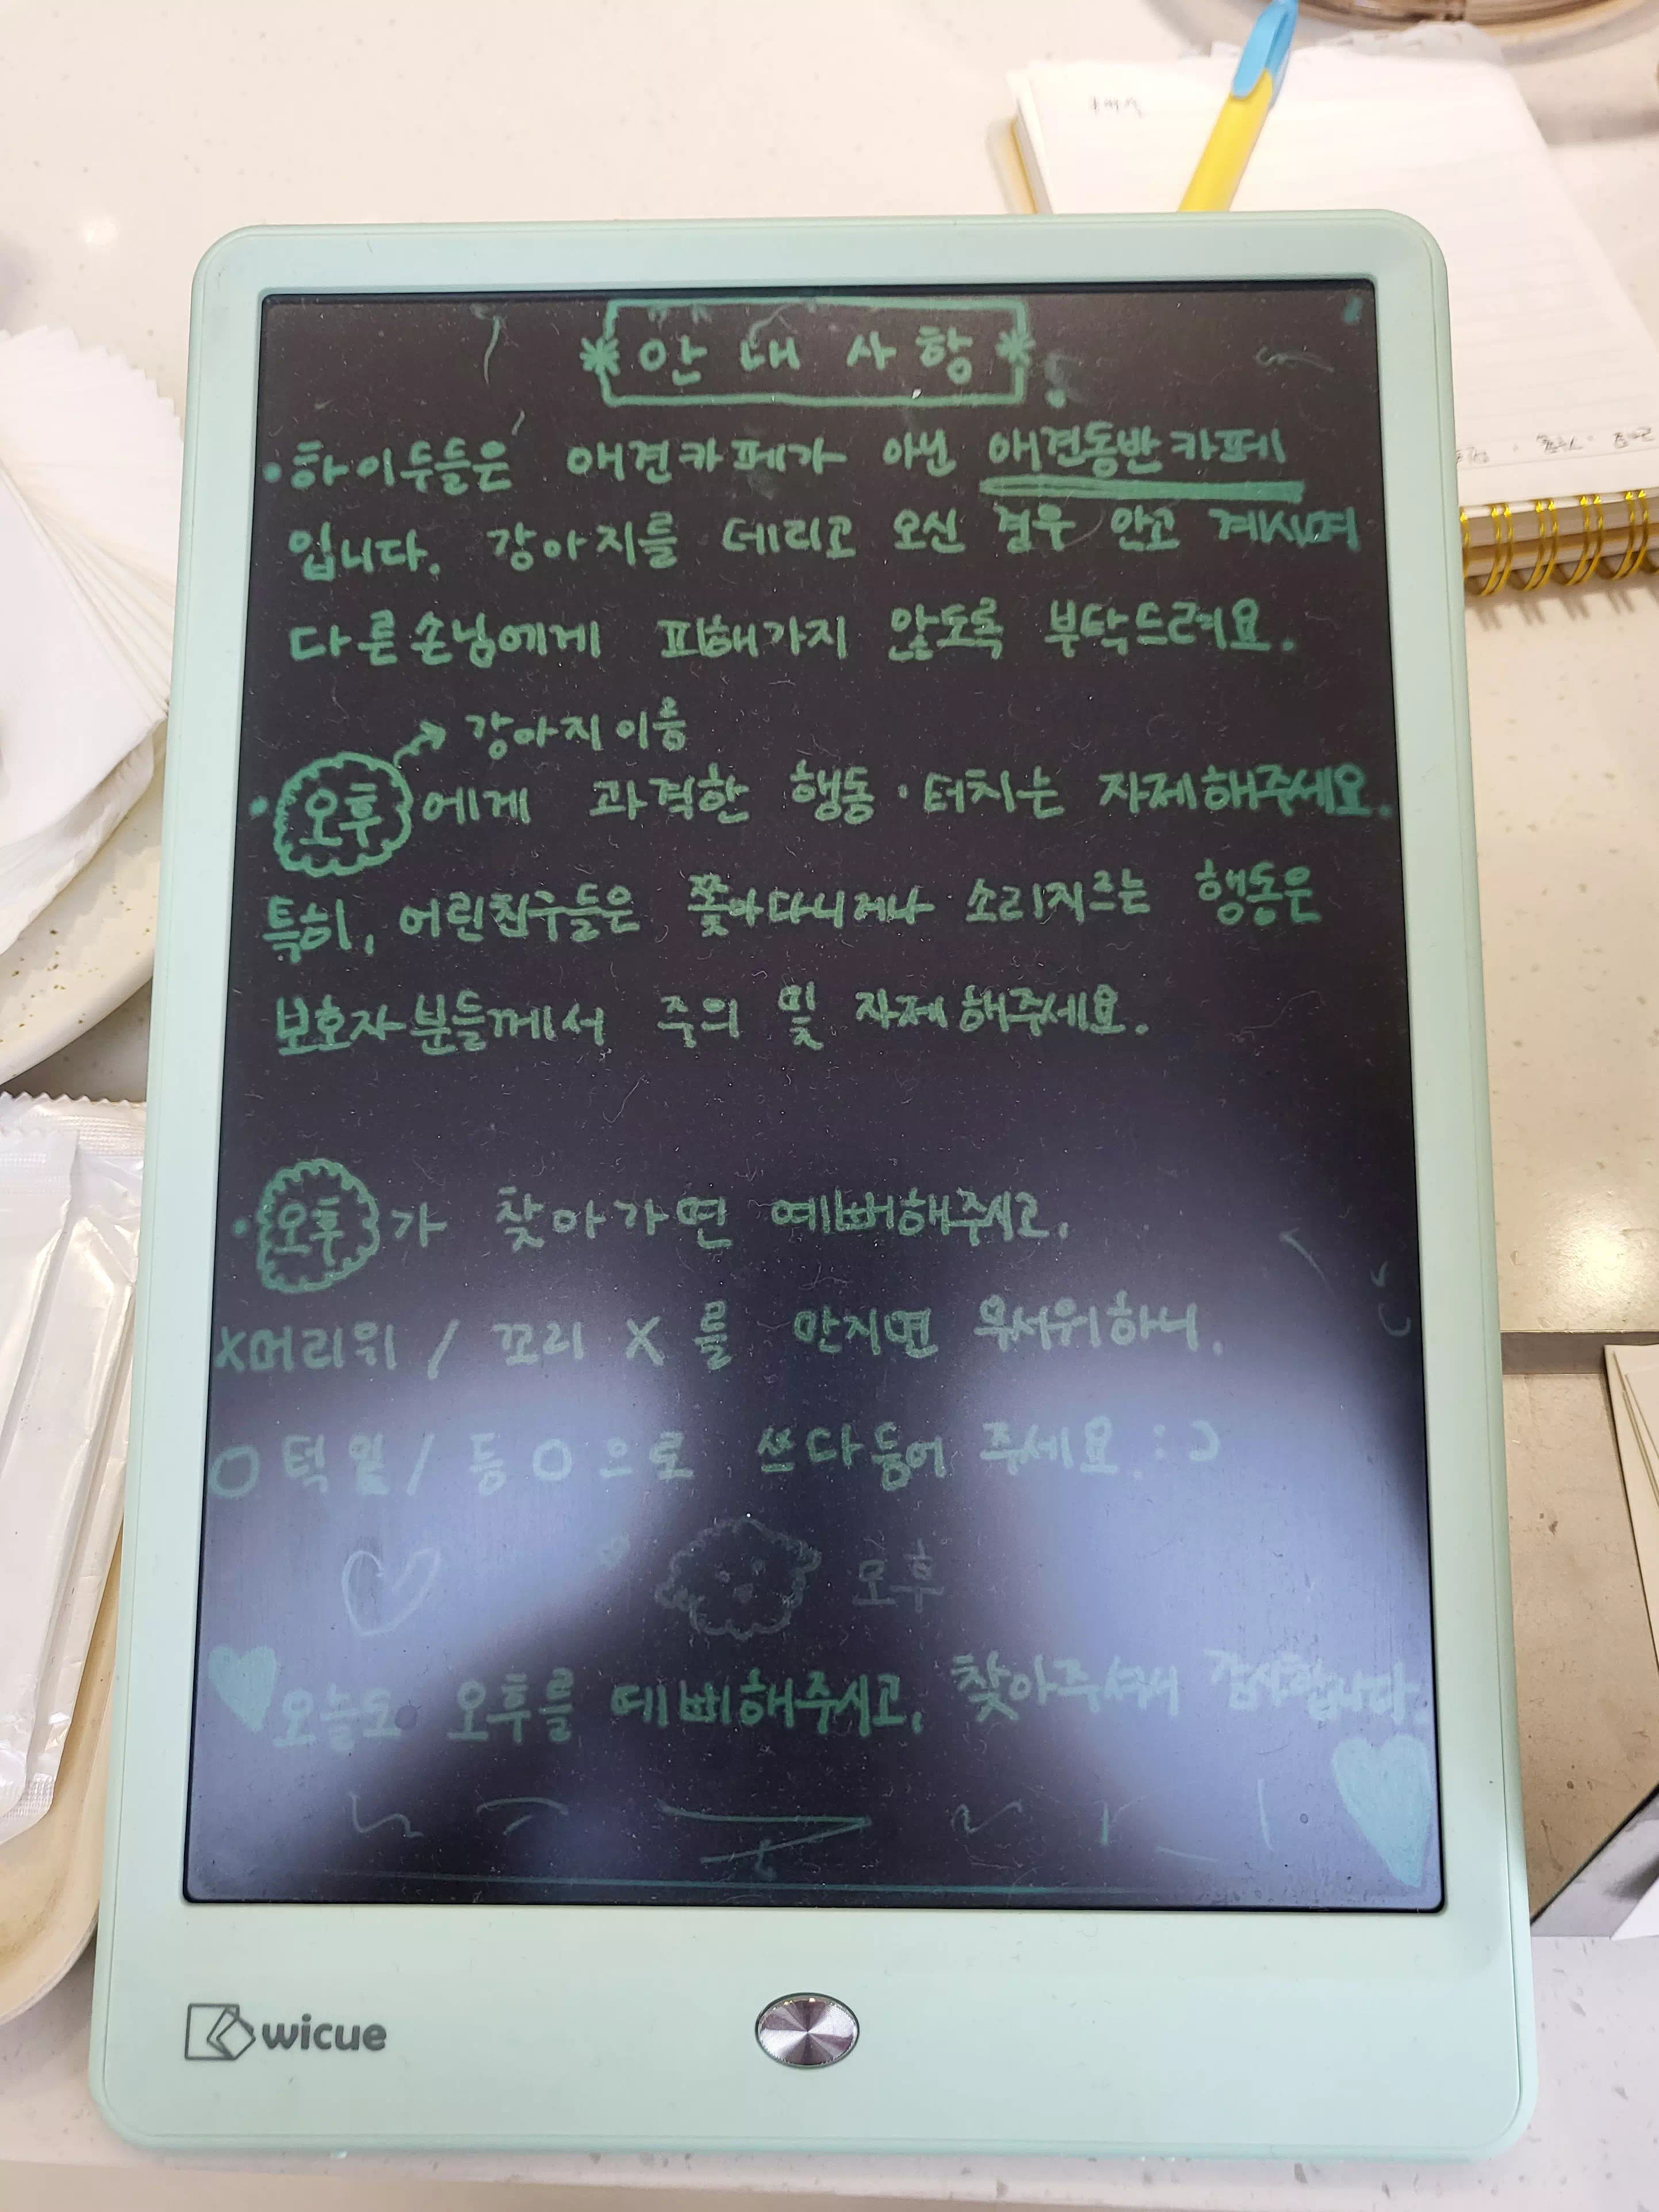 * 안 내 사 항 *
• 하이두들은 애견카페가 아닌 애견동반카페
입니다. 강아지를 데리고 오신 경우 안고 계시며
다른손님에게 피해가지 않도록 부탁드려요.
→ 강아지 이름
• 오후 에게 과격한 행동 · 터치는 자제해주세요.
특히, 어린친구들은 쫓아다니거나 소리지르는 행동은
보호자분들께서 주의 및 자제해주세요.
• 오후 가 찾아가면 예뻐해주시고,
X머리위 / 꼬리 X 를 만지면 무서워하니,
O 턱밑 / 등 O 으로 쓰다듬어 주세요 :)
오후
오늘도 오후를 예삐해주시고, 찾아주셔서 감사합니다.
wicue